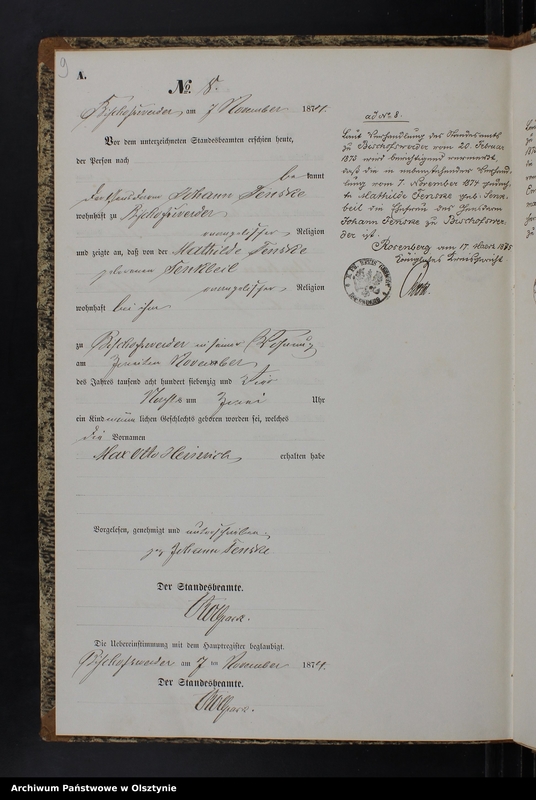 9
A.
No. 8.
Bischofswerder am 7 November 1874.
Vor dem unterzeichneten Standesbeamten erschien heute,
der Person nach
bekannt
Johann Fenske
wohnhaft zu Bischofswerder
evangelischer Religion
und zeigte an, daß von der Mathilde Fenske
geborenen Senkbeil
evangelischer Religion
wohnhaft bei ihm
zu Bischofswerder in seiner Wohnung
am zweiten November
des Jahres tausend acht hundert siebenzig und vier
Nachts um zwei Uhr
ein Kind männlichen Geschlechts geboren worden sei, welches
die Vornamen
Max Otto Heinrich erhalten habe
Vorgelesen, genehmigt und unterschrieben
gez Johann Fenske
Der Standesbeamte.
Die Uebereinstimmung mit dem Hauptregister beglaubigt.
Bischofswerder am 7 ten November 1874.
Der Standesbeamte.
ad No. 8.
Laut Verhandlung des Standesamts
zu Bischofswerder vom 20. Februar
1875 wird berichtigend vermerkt,
daß die in nebenstehender Verhand-
lung vom 7. November 1874 genann-
te Mathilde Fenske geb. Senk-
beil die Ehefrau des Händlers
Johann Fenske zu Bischofswer-
der ist.
Rosenberg am 17 März 1875
Königliches Kreisgericht.
Archiwum Państwowe w Olsztynie